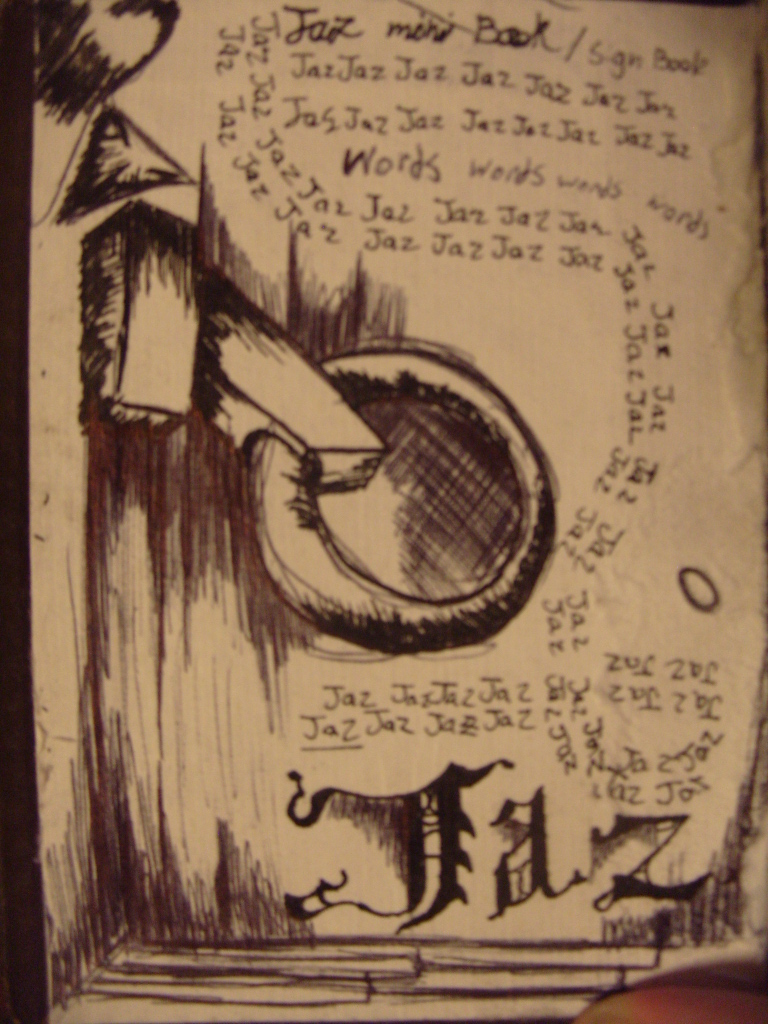 Jaz mini Book / Sign Book
Jaz Jaz Jaz Jaz Jaz Jaz Jaz
Jaz Jaz Jaz Jaz Jaz Jaz Jaz Jaz
Words words words words
Jaz Jaz Jaz Jaz Jaz
Jaz Jaz Jaz Jaz Jaz
Jaz Jaz Jaz Jaz
Jaz Jaz Jaz
Jaz Jaz Jaz Jaz Jaz
Jaz Jaz Jaz
Jaz Jaz
Jaz Jaz
Jaz Jaz
Jaz Jaz
Jaz Jaz
Jaz Jaz Jaz Jaz
Jaz Jaz Jaz Jaz
Jaz Jaz
Jaz Jaz
Jaz Jaz
Jaz